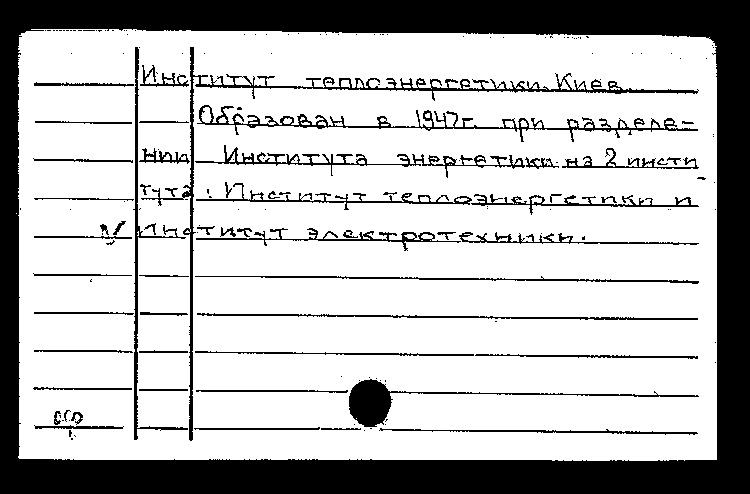 Институт теплоэнергетики. Киев.
Образован в 1947г. при разделе=
нии Института энергетики на 2 инсти
тута: Институт теплоэнергетики и
Институт электротехники.